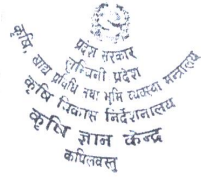 प्रदेश सरकार
लुम्बिनी प्रदेश
कृषि, खाद्य प्रविधि तथा भूमि व्यवस्था मन्त्रालय
कृषि विकास निर्देशनालय
कृषि ज्ञान केन्द्र
कपिलवस्तु